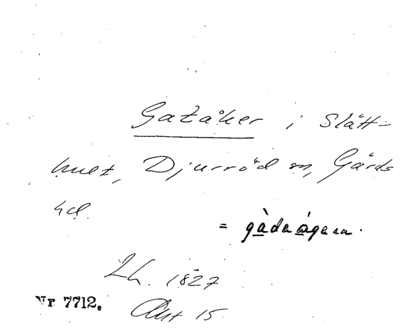 Gatåker i Slätt-
hult, Djurröd sn, Gärds
hd.
= gàdaågara.
Lh. 1827
Akt 15
Nr 7712.